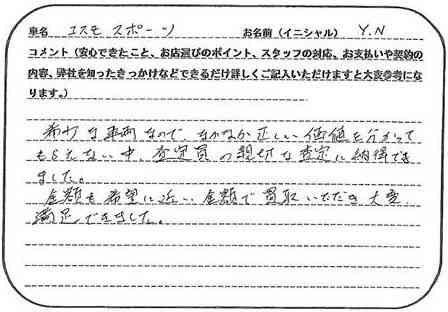 車名 コスモ スポーツ お名前(イニシャル) Y.N
コメント(安心できたこと、お店選びのポイント、スタッフの対応、お支払いや契約の
内容、弊社を知ったきっかけなどできるだけ詳しくご記入いただけますと大変参考にな
ります。)
希少な車両なので、なかなか正しい価値を分かって
もらえない中、査定員の親切な査定に納得でき
ました。
金額も希望に近い金額で買取いただき大変
満足できました。